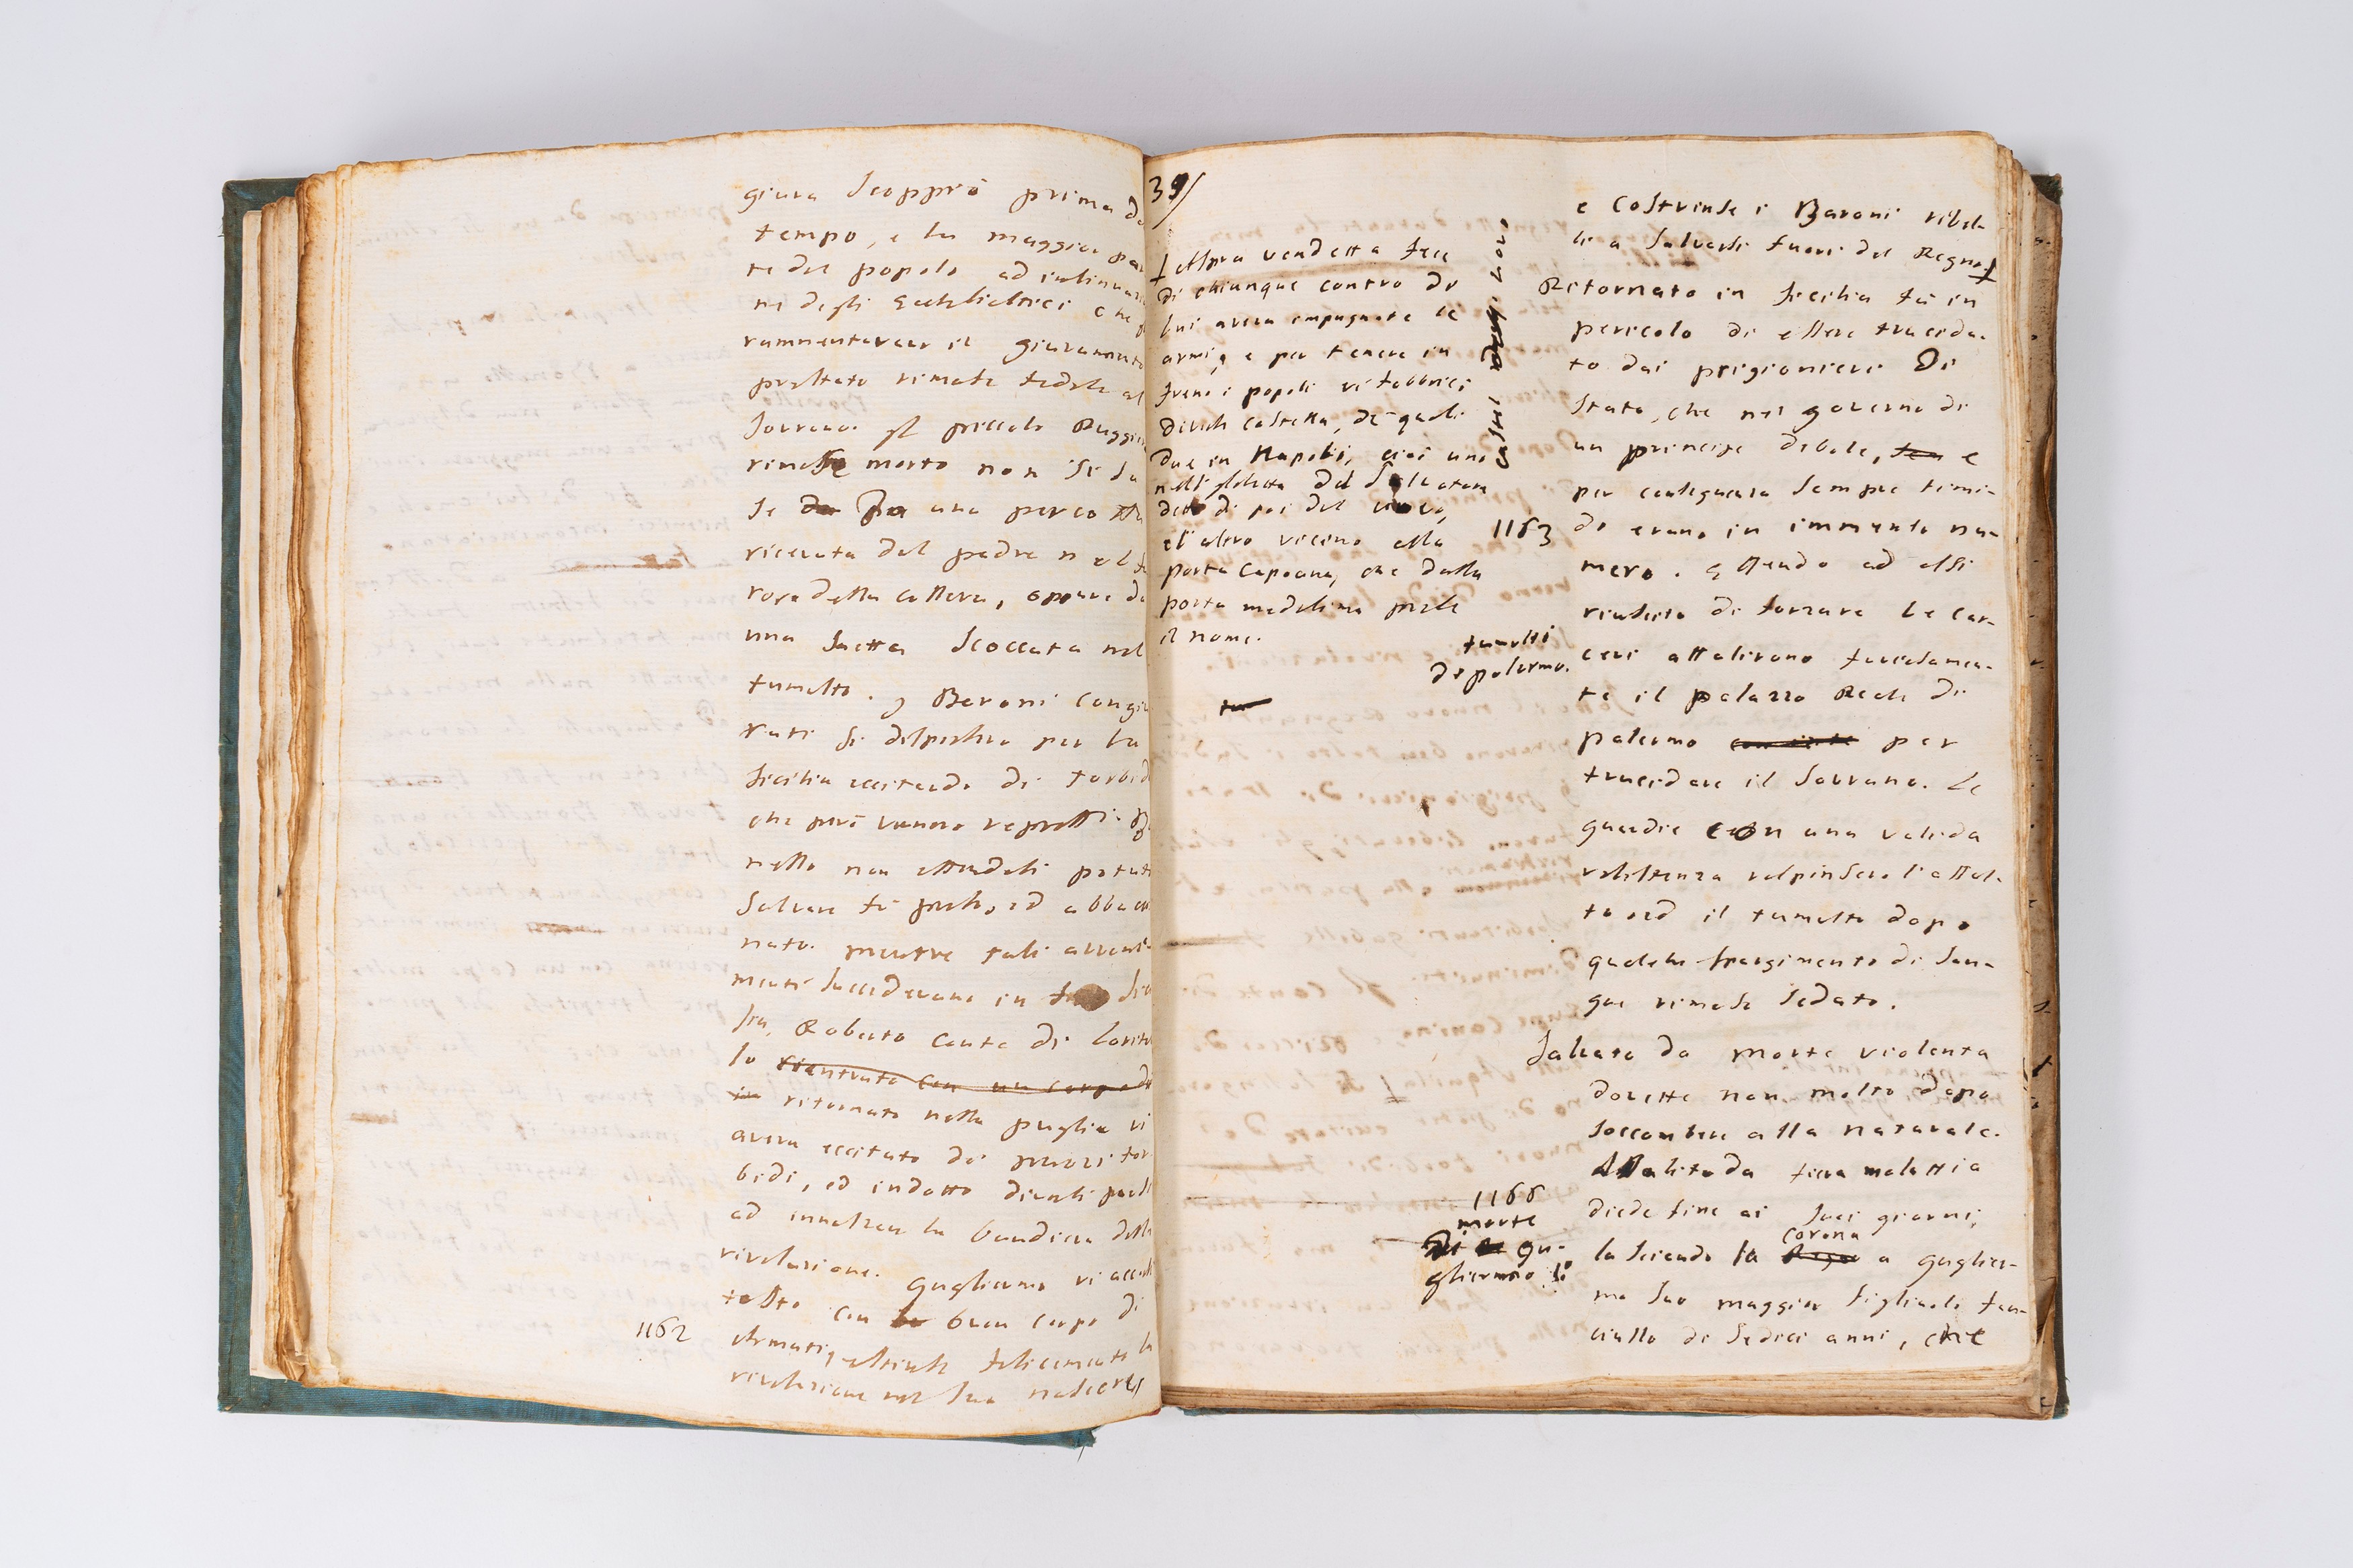 giura scoppiò prima de
tempo, e la maggior par
te del popolo ad insinuazio
ne degli Ecclesiastici che
rammentavan il giuramento
prestato rimase fedele al
Sovrano. Il piccolo Ruggie
rimase morto non si sa
se da una percossa
ricevuta dal padre nel fu
rore della collera, oppure da
una saetta scoccata nel
tumulto. I Baroni congiu
rati si dispersero per la
Sicilia eccitando di torbidi
che però vennero repressi. Bo
nello non essendosi potuto
salvare fù preso, ed abbacci
nato. mentre tali avveni
menti succedevano in Sici
lia, Roberto Conte di Loritel
lo rientrato con un corpo di
in ritornato nella puglia vi
aveva eccitato de nuovi tor
bidi, ed indotto diversi paesi
ad innalzare la bandiera della
rivoluzione. Guglielmo vi accorse
tosto con buon corpo di
1162
Armati, estinse felicemente la
rivoluzione nel suo nascere,
39/
Aspra vendetta fece
di chiunque contro di
lui aveva impugnate le
armi, e per tenere in
freno i popoli vi fabbricò
diversi castella, de' quali
due in Napoli, cioè uno
nell'Isoletta del Salvatore
detto di poi dell'uovo,
e l'altro vicino alla
porta Capoana, che dalla
porta medesima prese
il nome.
e costrinse i Baroni ribel-
li a salvarsi fuori del Regno.
Ritornato in Sicilia fù in
pericolo di essere trucida-
to dai prigionieri Di
stato, che nel governo di
un principe debole, e
per conseguenza sempre timi-
1163
do erano in immenso nu-
mero. Essendo ad essi
riuscito di forzare le car-
tumulti
di palermo.
ceri assalirono furiosamen-
te il palazzo Reale di
palermo per
trucidare il Sovrano. Le
guardie con una valida
resistenza respinsero l'assal-
to ed il tumulto dopo
qualche spargimento di san-
gue rimase sedato.
Salvato da morte violenta
dovette non molto dopo
soccombere alla naturale.
Assalito da fiera malattia
1166
morte
di Gu-
glielmo I.
diede fine ai suoi giorni,
corona
lasciando la a Gugliel-
mo suo maggior figliuolo fan-
ciullo di sedici anni, che